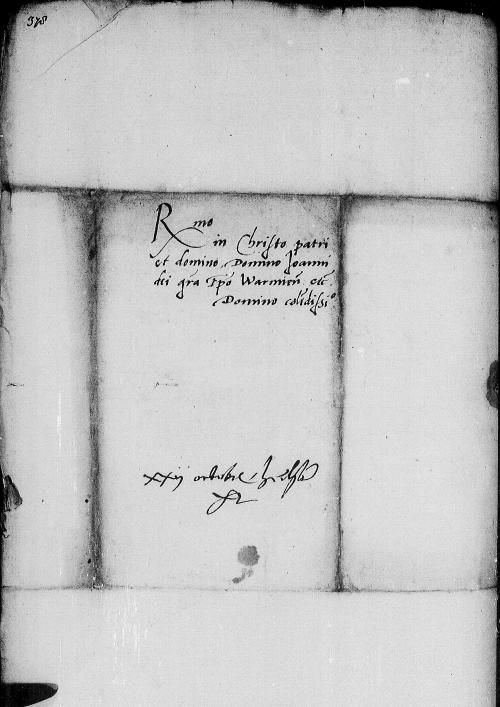 378
Rmo
in Christo patri
et domino, Domino Joanni
dei gra Epo Warmien etc
Domino colēdissio
xxij octobr